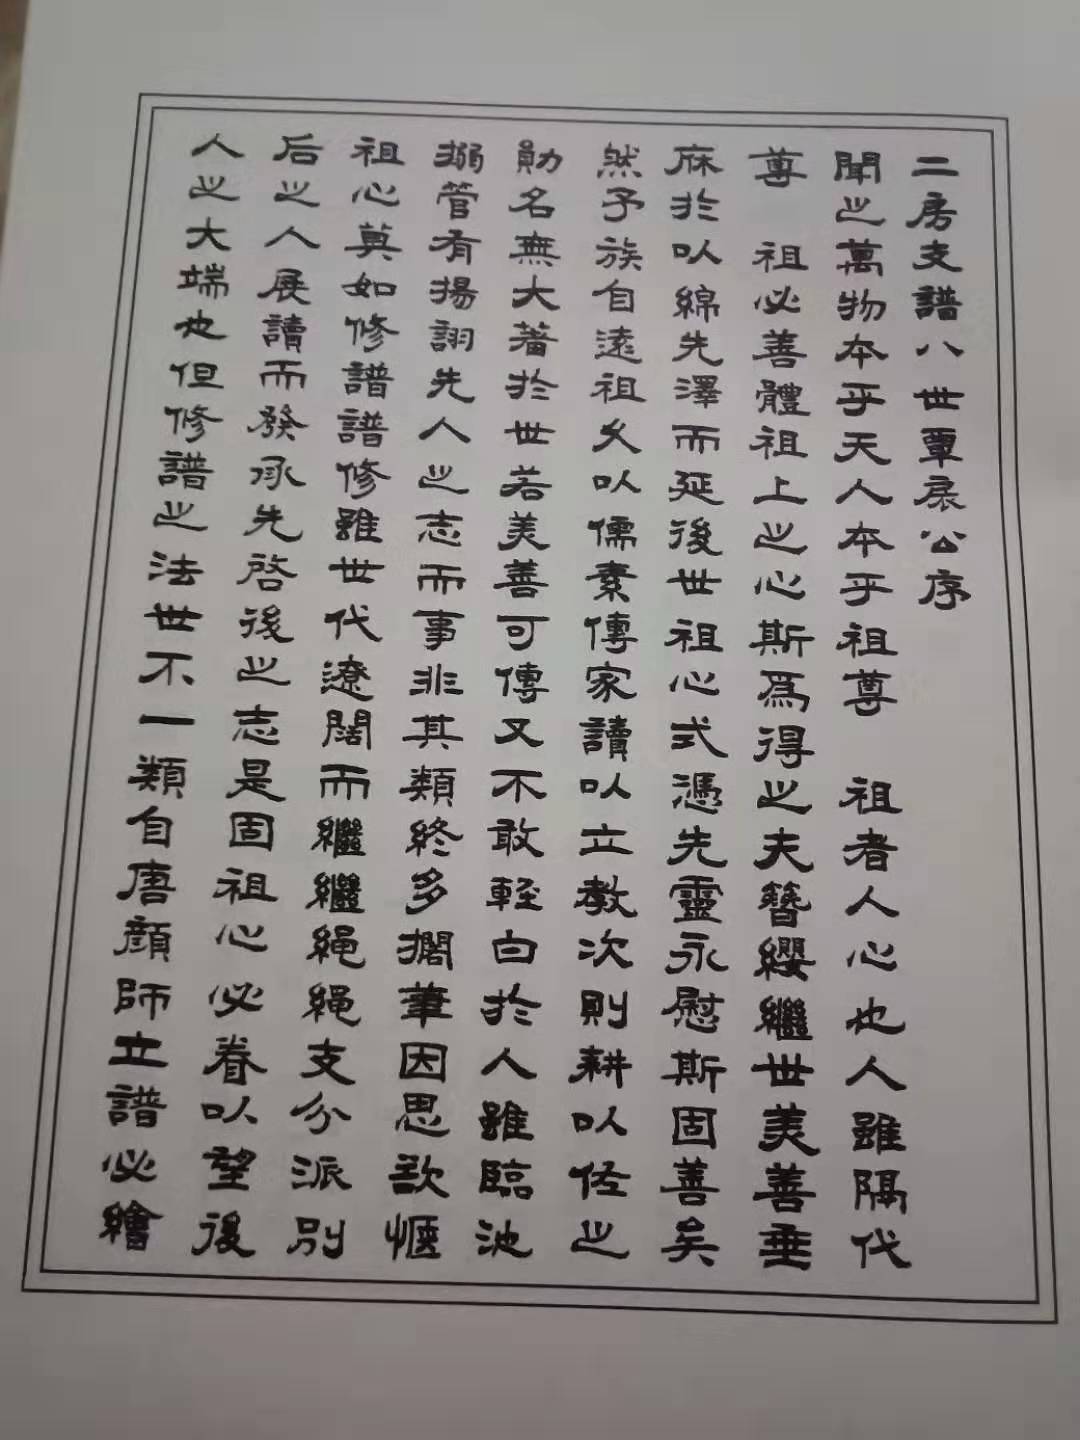 二房支譜八世覃宸公序
聞之萬物本乎天人本乎祖尊　祖者人心也人雖隔代
尊　祖必善體祖上之心斯為得之夫簪纓繼世美善垂
庥於以綿先澤而延後世祖心式憑先靈永慰斯固善矣
然予族自遠祖久以儒素傳家讀以立教次則耕以佐之
勛名無大著於世若美善可傳又不敢輕白於人雖臨池
搦管有揚詡先人之志而事非其類終多擱筆因思歆愜
祖心莫如修譜譜修雖世代遼闊而繼繼繩繩支分派別
后之人展讀而發承先啓後之志是固祖心必眷以望後
人之大端也但修譜之法世不一類自唐顏師立譜必繪